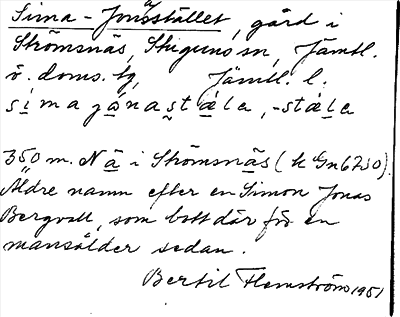 Sima-Jonsstället, gård i
Strömsnäs, Stuguns sn, Jämtl.
ö. doms. tg, Jämtl. l.
350 m. NÄ i Strömsnäs (k Gn 6230).
Äldre namn efter en Simon Jonas
Bergvall, som bott där för en
mansålder sedan.
Bertil Flemström 1951